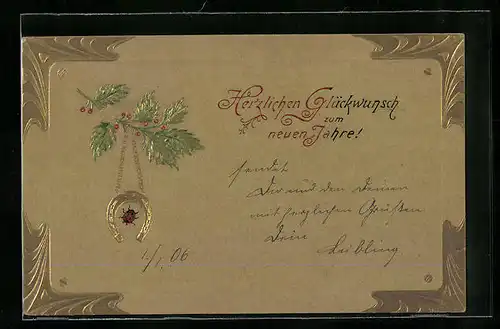 Herzlichen Glückwunsch
zum
neuen Jahre!
sendet
Dir und den Deinen
mit herzlichen Grüßen
Dein Liebling
1/1 06